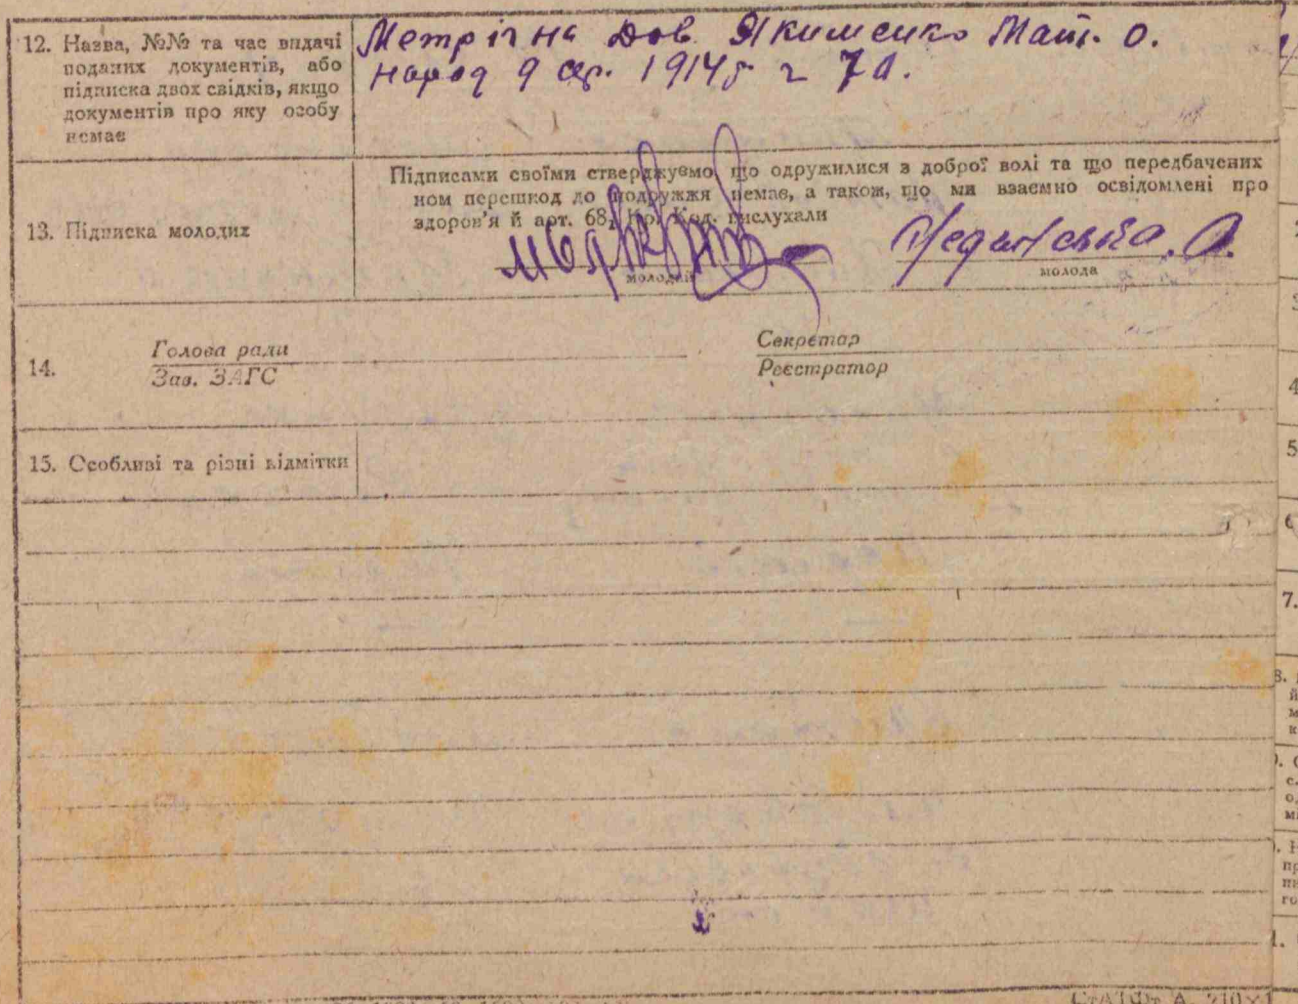 12. Назва, №№ та час видачі
поданих документів, або
підписка двох свідків, якщо
документів про яку особу
немає
Метрічна Дов. Якименко Мат. О.
народ 9 сер. 1914 р. 2 7 д.
13. Підписка молодих
Підписами своїми стверджуємо, що одружилися з доброї волі та що передбачених
ном перешкод до подружжя немає, а також, що ми взаємно освідомлені про
здоров'я й арт. 68, Кр. Код. вислухали
молодий
молода
14.
Голова ради
Зав. ЗАГС
Секретар
Реєстратор
15. Особливі та різні відмітки
3
4
5
6
7.